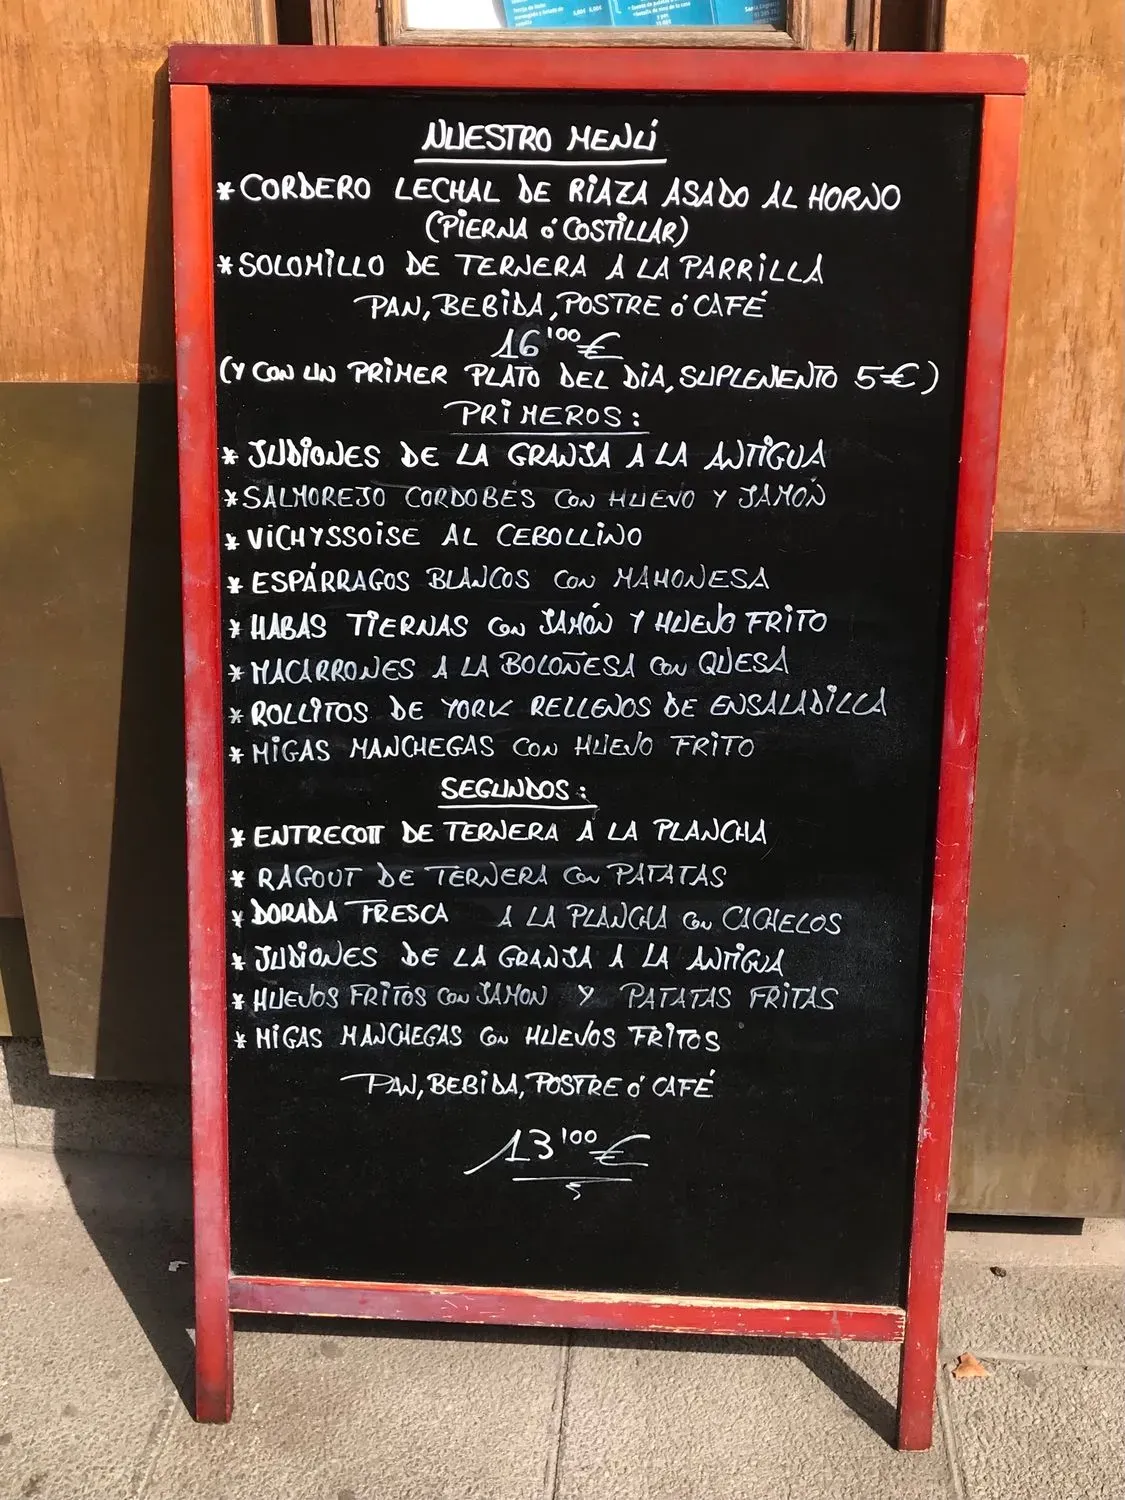 NUESTRO MENÚ
* CORDERO LECHAL DE RIAZA ASADO AL HORNO
(PIERNA ó COSTILLAR)
* SOLOMILLO DE TERNERA A LA PARRILLA
PAN, BEBIDA, POSTRE ó CAFÉ
16'00 €
(Y CON UN PRIMER PLATO DEL DÍA, SUPLEMENTO 5€)
PRIMEROS:
* JUDIONES DE LA GRANJA A LA ANTIGUA
* SALMOREJO CORDOBÉS CON HUEVO Y JAMÓN
* VICHYSSOISE AL CEBOLLINO
* ESPÁRRAGOS BLANCOS CON MAHONESA
* HABAS TIERNAS CON JAMÓN Y HUEVO FRITO
* MACARRONES A LA BOLOÑESA CON QUESA
* ROLLITOS DE YORK RELLENOS DE ENSALADILLA
* MIGAS MANCHEGAS CON HUEVO FRITO
SEGUNDOS:
* ENTRECOTT DE TERNERA A LA PLANCHA
* RAGOUT DE TERNERA CON PATATAS
* DORADA FRESCA A LA PLANCHA CON CACHELOS
* JUDIONES DE LA GRANJA A LA ANTIGUA
* HUEVOS FRITOS CON JAMON Y PATATAS FRITAS
* MIGAS MANCHEGAS CON HUEVOS FRITOS
PAN, BEBIDA, POSTRE ó CAFÉ
13'00 €